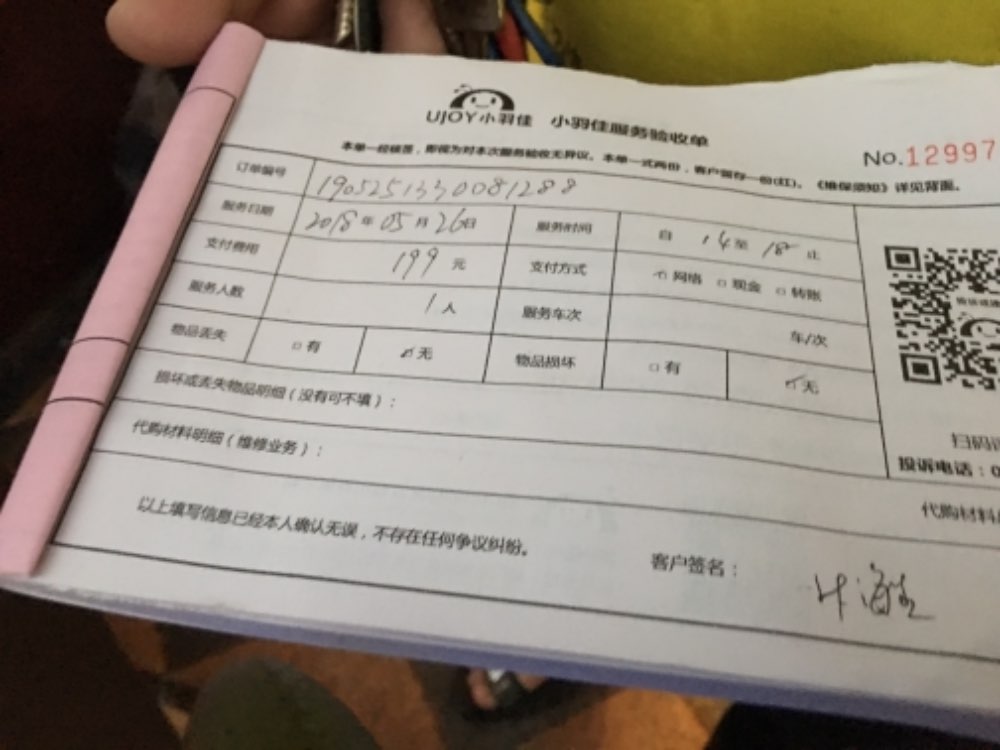 UJOY小羽佳 小羽佳服务验收单
No.12997
本单一经签，即视为对本次服务验收无异议。本单一式两份，客户留存一份(红)。《维保须知》详见背面。
订单编号 1905251330081288
服务日期 2018年05月26日 服务时间 自14至18止
支付费用 199元 支付方式 网络 □现金 □转账
服务人数 1人 服务车次 车/次
物品丢失 □有 ☑无 物品损坏 □有 ☑无
损坏或丢失物品明细（没有可不填）：
扫码
投诉电话：0
代购材料明细（维修业务）：
代购材料
以上填写信息已经本人确认无误，不存在任何争议纠纷。
客户签名：